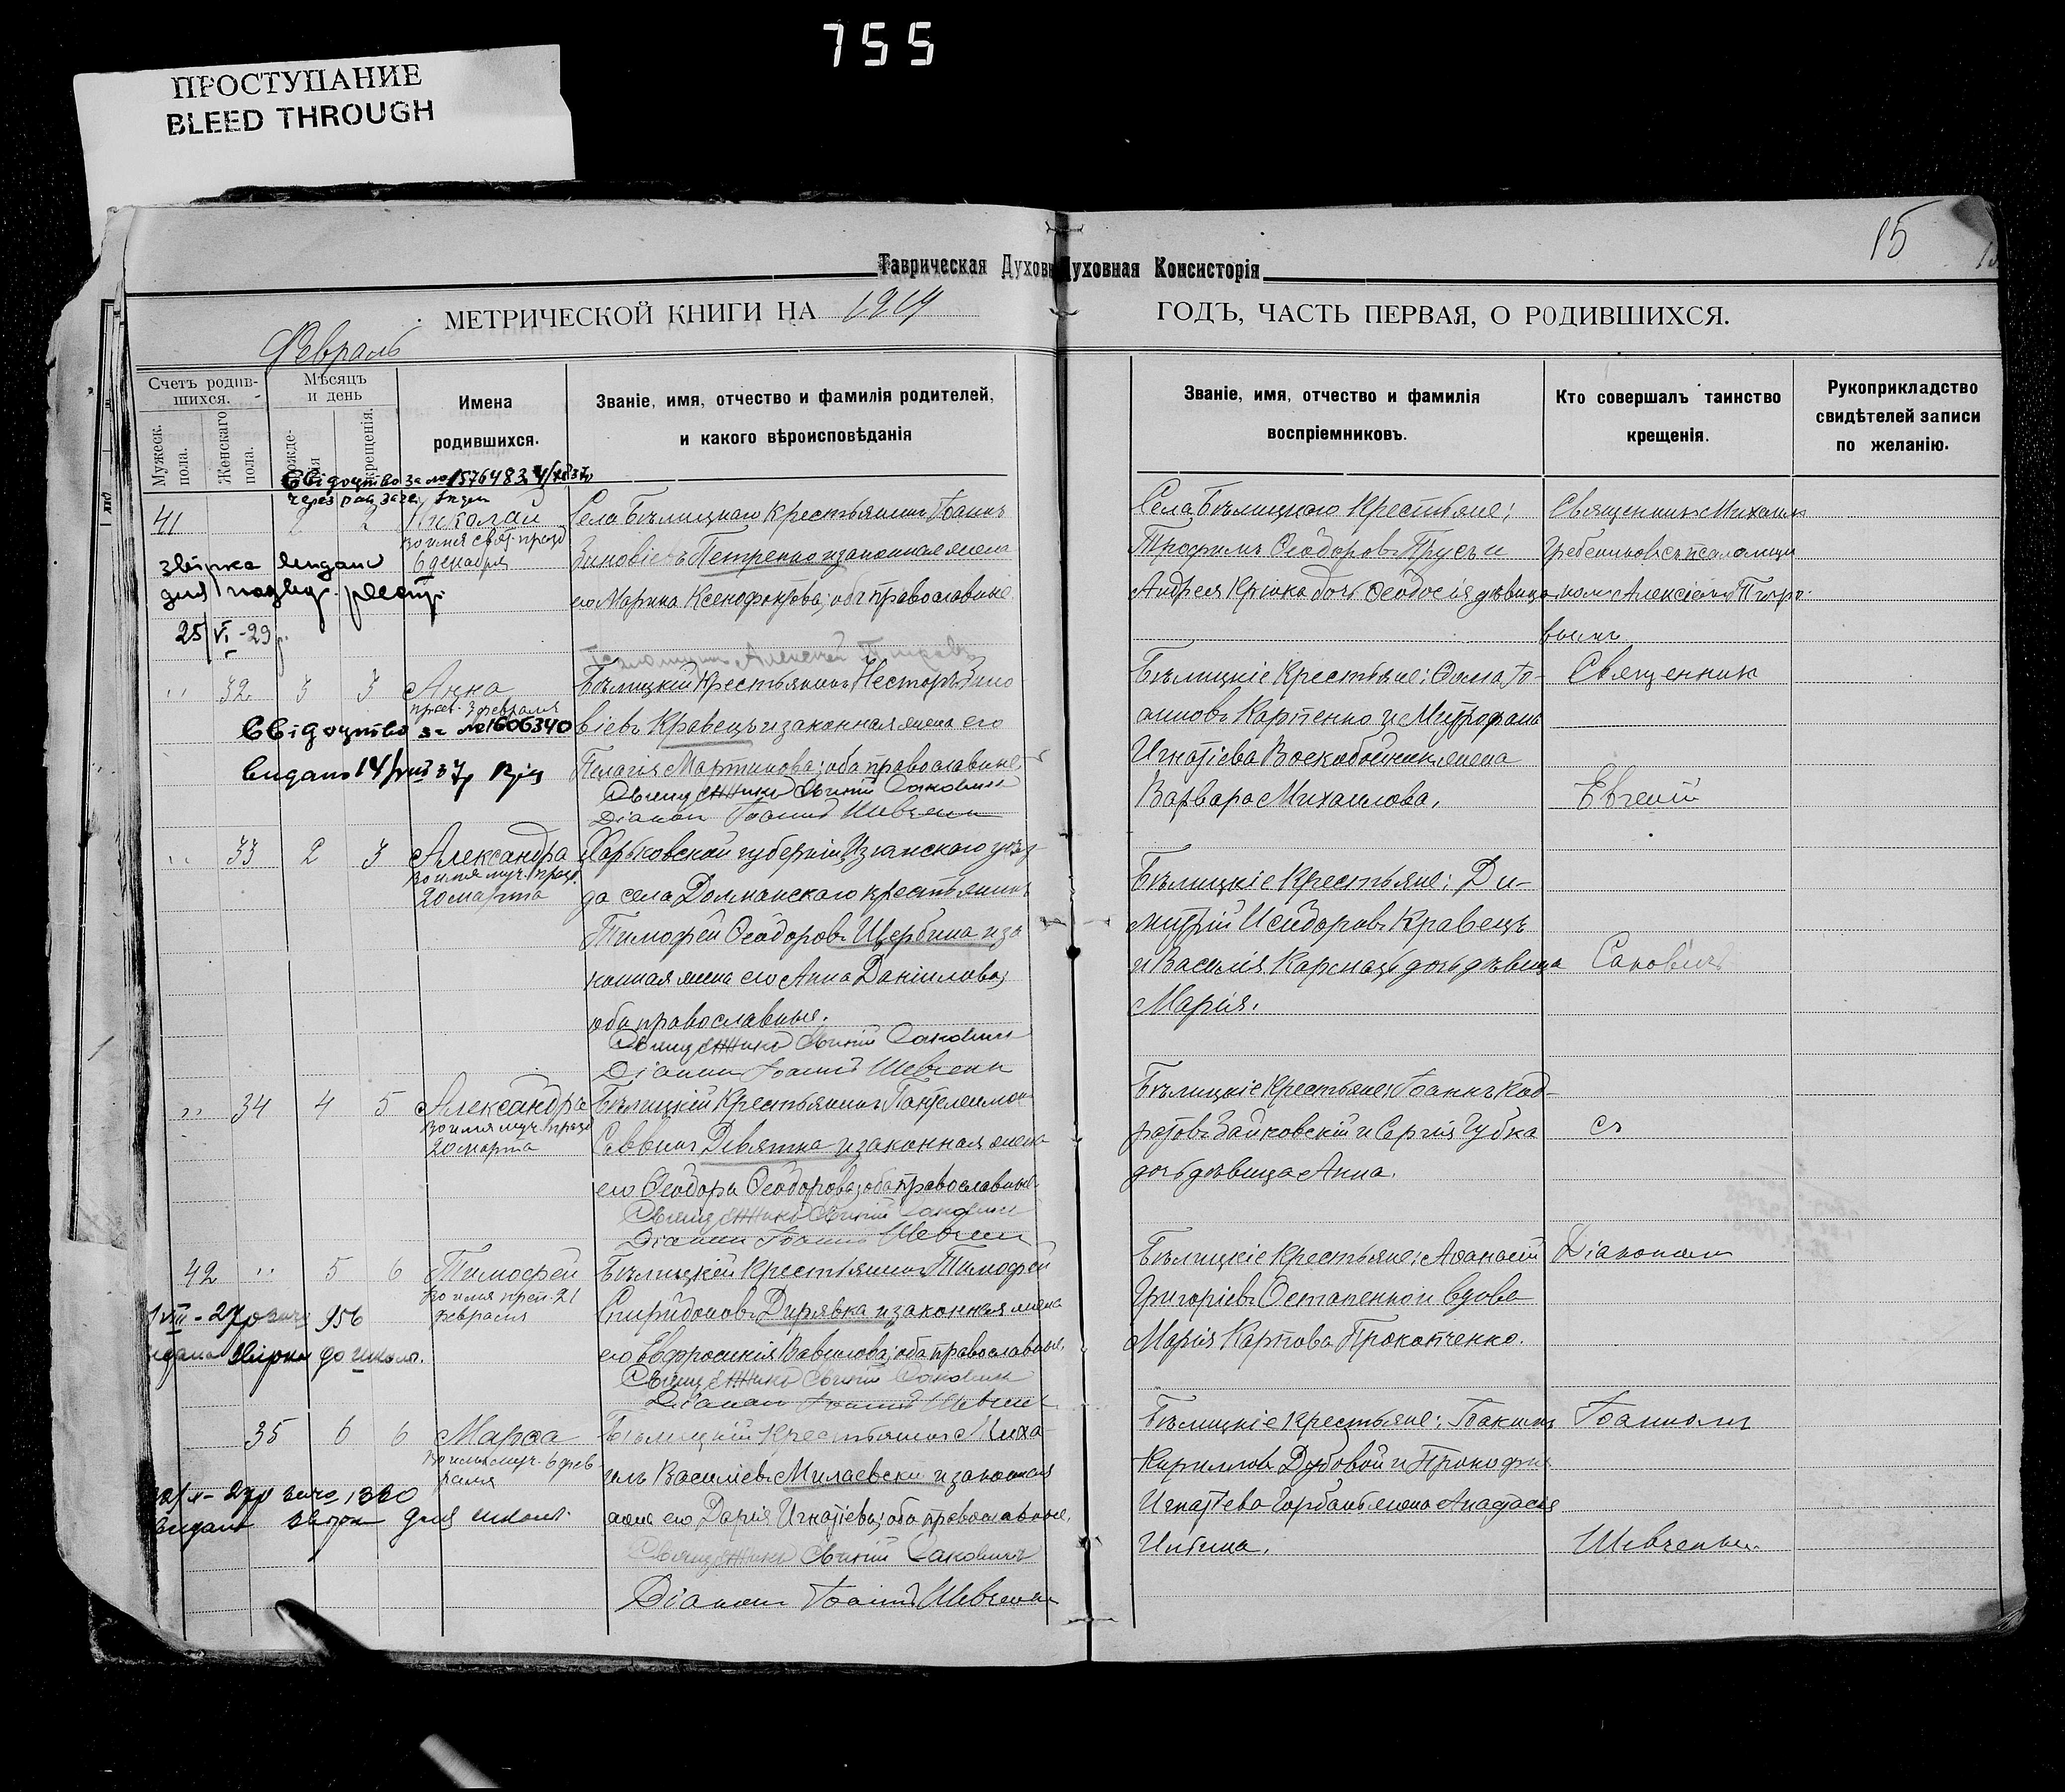 755
ПРОСТУПАНИЕ
BLEED THROUGH
15
Таврическая Духовная Консисторія
МЕТРИЧЕСКОЙ КНИГИ НА 1919 ГОДЪ, ЧАСТЬ ПЕРВАЯ, О РОДИВШИХСЯ.
Февраль
Счетъ родив-
шихся.
Мужеск.
пола.
Женскаго
пола.
Мѣсяцъ
и день
рожде-
нія
крещенія.
Имена
родившихся.
Званіе, имя, отчество и фамилія родителей,
и какого вѣроисповѣданія
Званіе, имя, отчество и фамилія
воспріемниковъ.
Кто совершалъ таинство
крещенія.
Рукоприкладство
свидѣтелей записи
по желанію.
Свідоцтво за №
41 2 2 Николай
во имя свят. празд
6 декабря
звірка видано
для
25/VI-29 р.
Села Бѣлицкаго крестьянинъ Іоаннъ
Зиновіевъ Петренко и законная жена
его Марина Ксенофонтова, оба православные.
Села Бѣлицкаго крестьяне:
Трофимъ Ѳеодоровъ Трусъ и
Андрея Крюка дочь Ѳеодосія дѣвица
Священникъ Михаилъ
Гребенниковъ съ псаломщи
комъ Алексіемъ
32 3 3 Анна
прав. 3 февраля
Свідоцтво за №1606340
видано 14/VIII 37р
Бѣлицкій крестьянинъ Несторъ Зино
віевъ Кравецъ и законная жена его
Пелагія Мартинова; оба православные
Священникъ Евгеній Саковичъ
Діаконъ Іоаннъ Шевченко
Бѣлицкіе крестьяне: Ѳома Іо-
анновъ Карпенко и Митрофана
Игнатіева Воскобойник жена
Варвара Михаилова.
Священник
Евгеній
33 2 3 Александра
во имя муч. празд.
20 марта
Харьковской губерніи Изюмскаго уѣз-
да села Долманскаго крестьянинъ
Тимофей Ѳеодоровъ Щербина и за
конная жена его Анна Даніилова;
оба православные.
Священникъ Евгеній Саковичъ
Діаконъ Іоаннъ Шевченко
Бѣлицкіе крестьяне: Ди-
митрій Исидоровъ Кравецъ
и Василія дочь дѣвица
Марія.
Саковичъ
34 4 5 Александра
во имя муч. празд
20 марта
Бѣлицкій крестьянинъ Пантелеимон
Саввинъ Девятка и законная жена
его Ѳеодора Ѳеодорова; оба православные.
Священникъ Евгеній Саковичъ
Діаконъ Іоаннъ Шевченко
Бѣлицкіе крестьяне: Іоаннъ Код-
ратовъ Зайковскій и Сергія Губка
дочь дѣвица Анна.
съ
42 5 6 Тимофей
во имя преп. 21
февраля
956
видано звірка до школи.
Бѣлицкій крестьянинъ Тимофей
Спиридоновъ Дирявка и законная жена
его Евфросинія Вавилова; оба православные.
Священникъ Евгеній Саковичъ
Діаконъ Іоаннъ Шевченко
Бѣлицкіе крестьяне: Аѳанасій
Григоріевъ Остапенко и вдова
Марія Карпова Прокопченко.
Діакономъ
35 6 6 Марѳа
во имя муч. 6 фев
раля
1330
видано звірка для школи.
Бѣлицкій крестьянинъ Миха-
илъ Василіевъ Милаевски и законная
жена его Дарія Игнатіева; оба православные.
Священникъ Евгеній Саковичъ
Діаконъ Іоаннъ Шевченко
Бѣлицкіе крестьяне: Іоакимъ
Кирилловъ Дубовой и Прокофія
Игнатіева Горбань жена Анастасія
Ильина.
Іоанномъ
Шевченко.